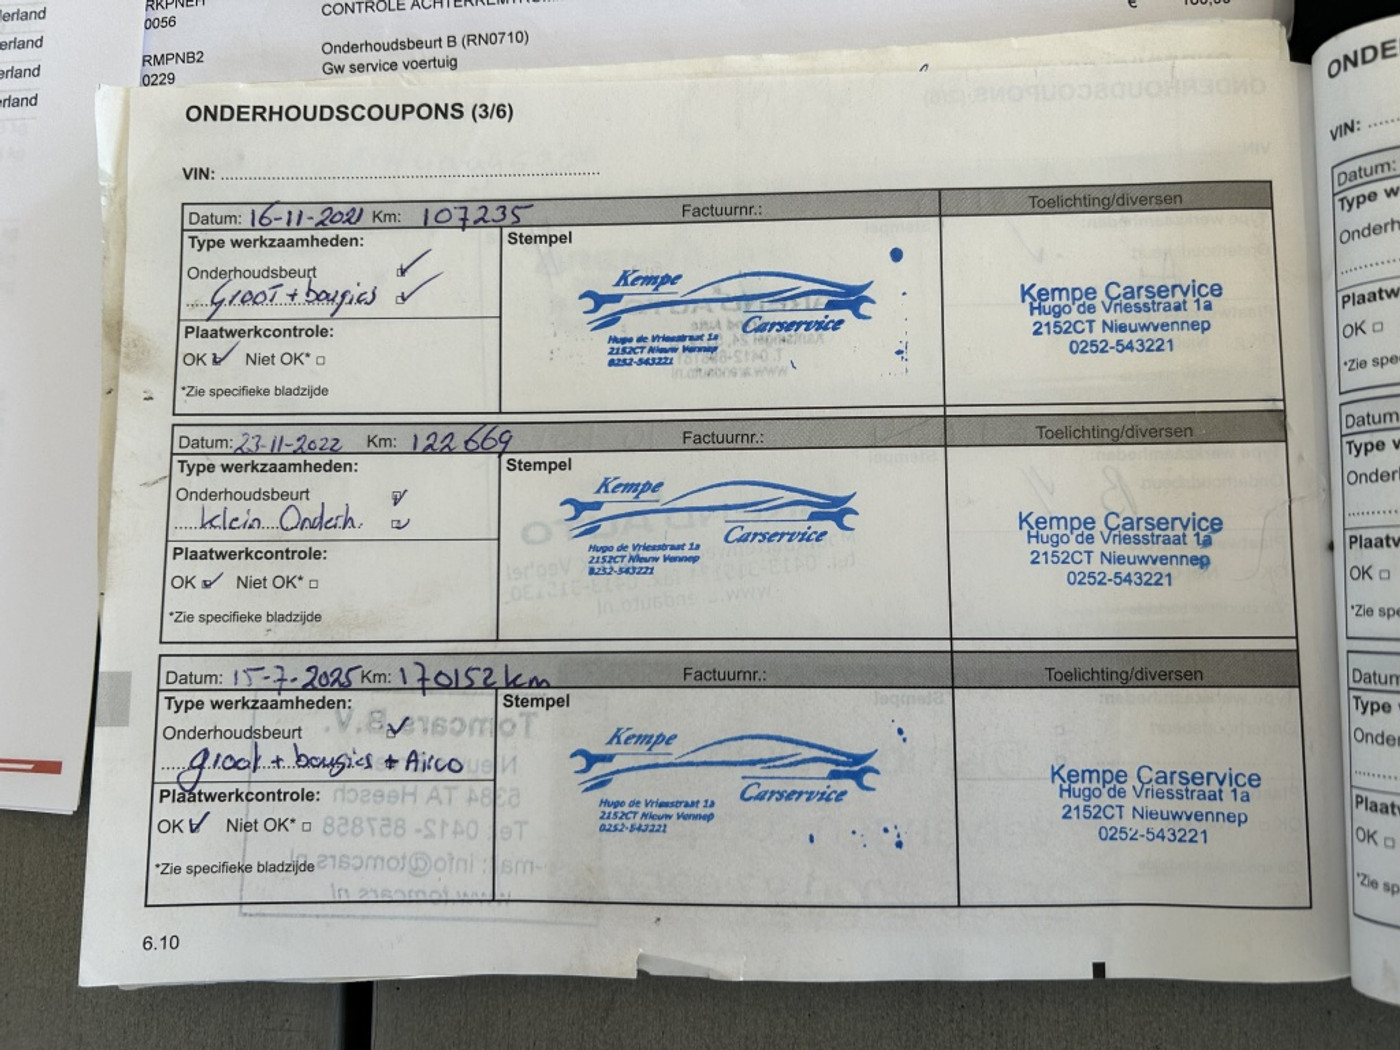 erland
erland
erland
erland
RKPNEH
0056
RMPNB2
0229
€
Onderhoudsbeurt B (RN0710)
Gw service voertuig
ONDERHOUDSCOUPONS (3/6)
VIN:
Datum: 16-11-2021 Km: 107235 Factuurnr.: Toelichting/diversen
Type werkzaamheden: Stempel
Onderhoudsbeurt
Groot + bougies
Plaatwerkcontrole:
OK Niet OK*
*Zie specifieke bladzijde
Kempe
Carservice
Hugo de Vriesstraat 1a
2152CT Nieuw Vennep
0252-543221
Kempe Carservice
Hugo de Vriesstraat 1a
2152CT Nieuwvennep
0252-543221
Datum: 23-11-2022 Km: 122669 Factuurnr.: Toelichting/diversen
Type werkzaamheden: Stempel
Onderhoudsbeurt
klein Onderh.
Plaatwerkcontrole:
OK Niet OK*
*Zie specifieke bladzijde
Kempe
Carservice
Hugo de Vriesstraat 1a
2152CT Nieuw Vennep
0252-543221
Kempe Carservice
Hugo de Vriesstraat 1a
2152CT Nieuwvennep
0252-543221
Datum: 15-7-2025 Km: 170152 km Factuurnr.: Toelichting/diversen
Type werkzaamheden: Stempel
Onderhoudsbeurt
groot + bougies + Airco
Plaatwerkcontrole:
OK Niet OK*
*Zie specifieke bladzijde
Kempe
Carservice
Hugo de Vriesstraat 1a
2152CT Nieuw Vennep
0252-543221
Kempe Carservice
Hugo de Vriesstraat 1a
2152CT Nieuwvennep
0252-543221
6.10
ONDE
VIN:
Datum:
Type w
Onderh
Plaatw
OK
*Zie spe
Datum
Type v
Onderl
Plaatv
OK
*Zie spe
Datum
Type
Onder
Plaats
OK
*Zie sp